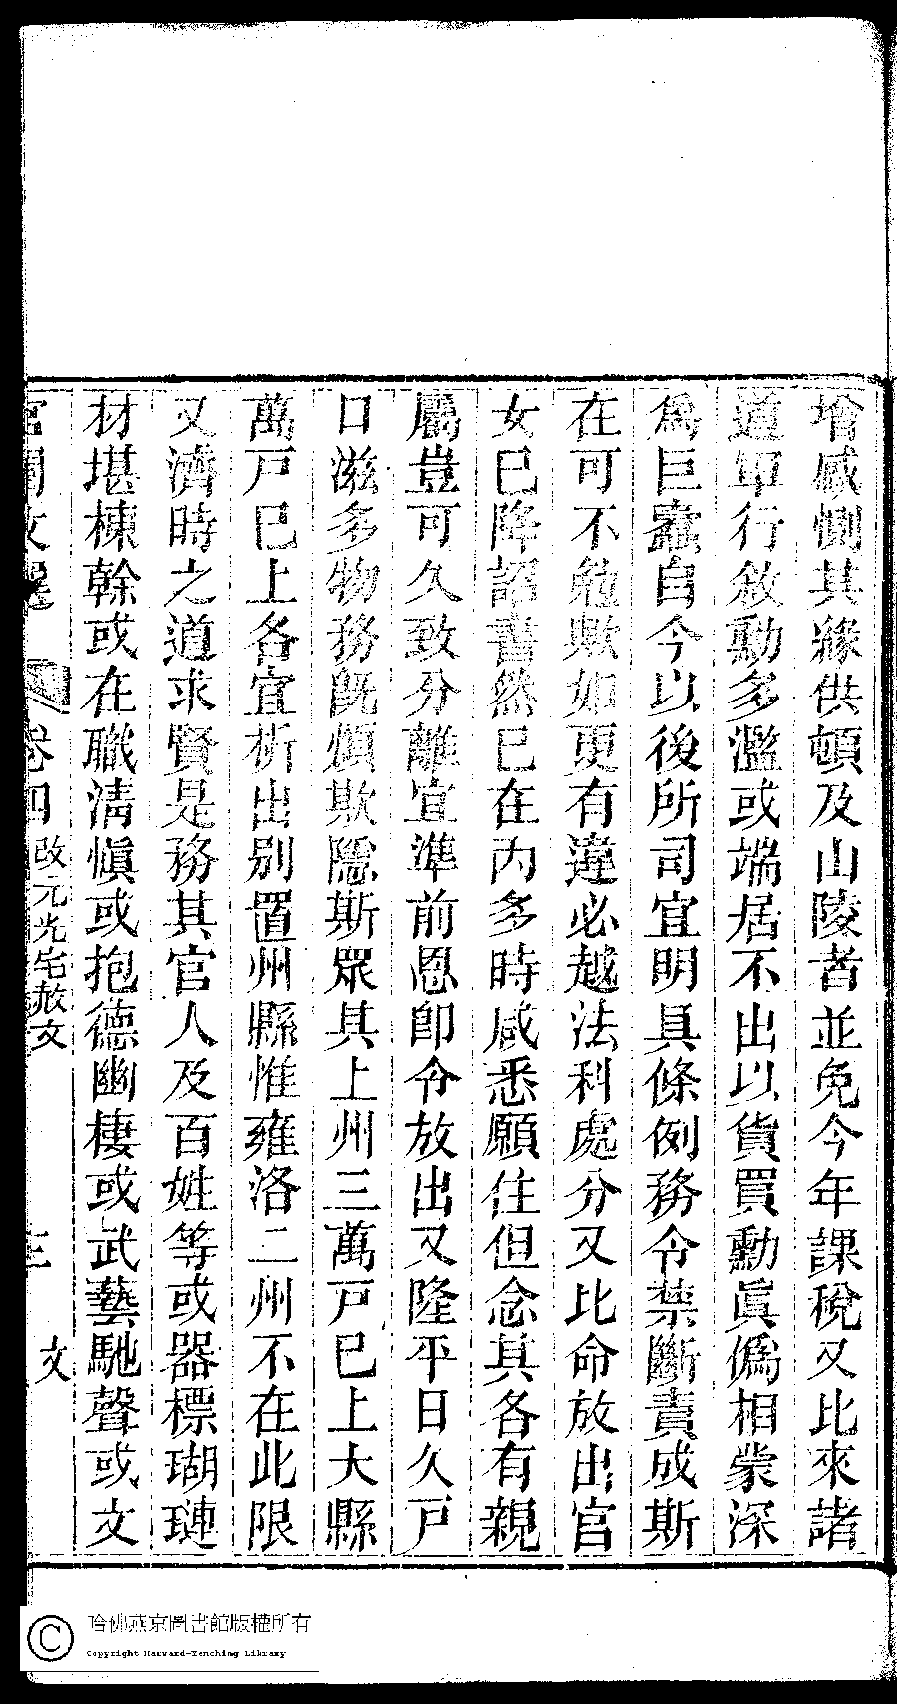 增感惻其緣供頓及山陵者並免今年課稅又比來諸
道軍行敘勳多濫或端居不出以貨買勳眞僞相蒙深
爲巨蠹自今以後所司宜明具條例務令禁斷責成斯
在可不勉歟如更有違必越法科處分又比命放出宫
女已降詔書然已在內多時咸悉願住但念其各有親
屬豈可久致分離宜準前恩卽令放出又隆平日久戸
口滋多物務旣煩欺隱斯衆其上州三萬戸已上大縣
萬戸已上各宜析出別置州縣惟雍洛二州不在此限
又濟時之道求賢是務其官人及百姓等或器標瑚璉
材堪棟幹或在職淸愼或抱德幽棲或武藝馳聲或文
宫閨文選 卷四 改元光宅赦文 三 文
哈佛燕京圖書館版權所有
Copyright Harvard-Yenching Library